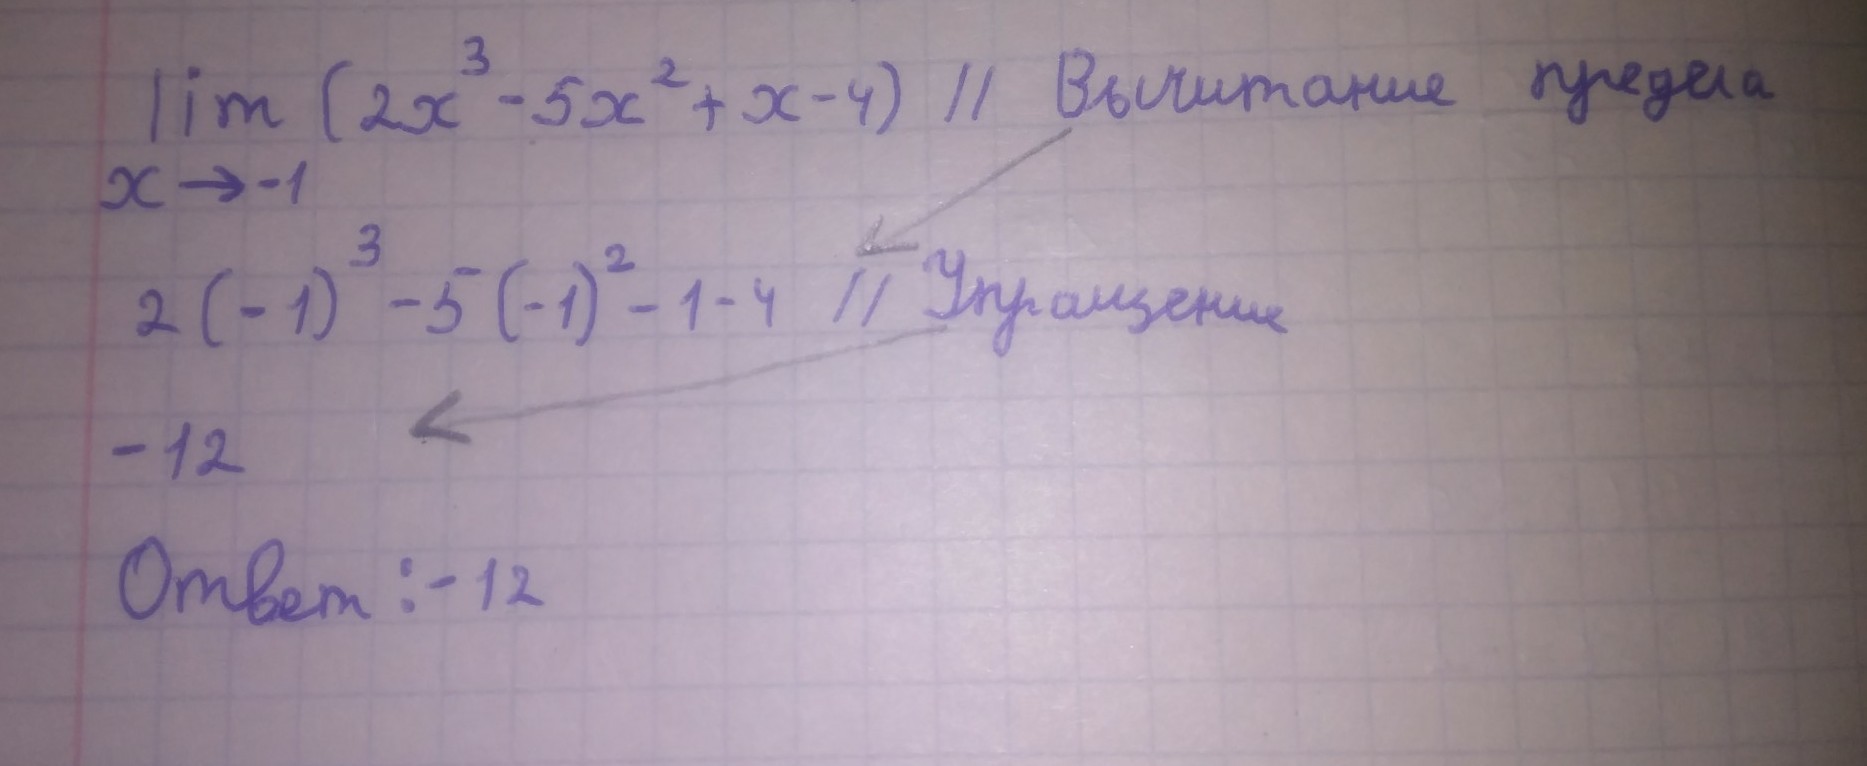 lim (2x³-5x²+x-4) // Вычитание предела
x→-1
2(-1)³-5(-1)²-1-4 // Упращение
-12
Ответ:-12